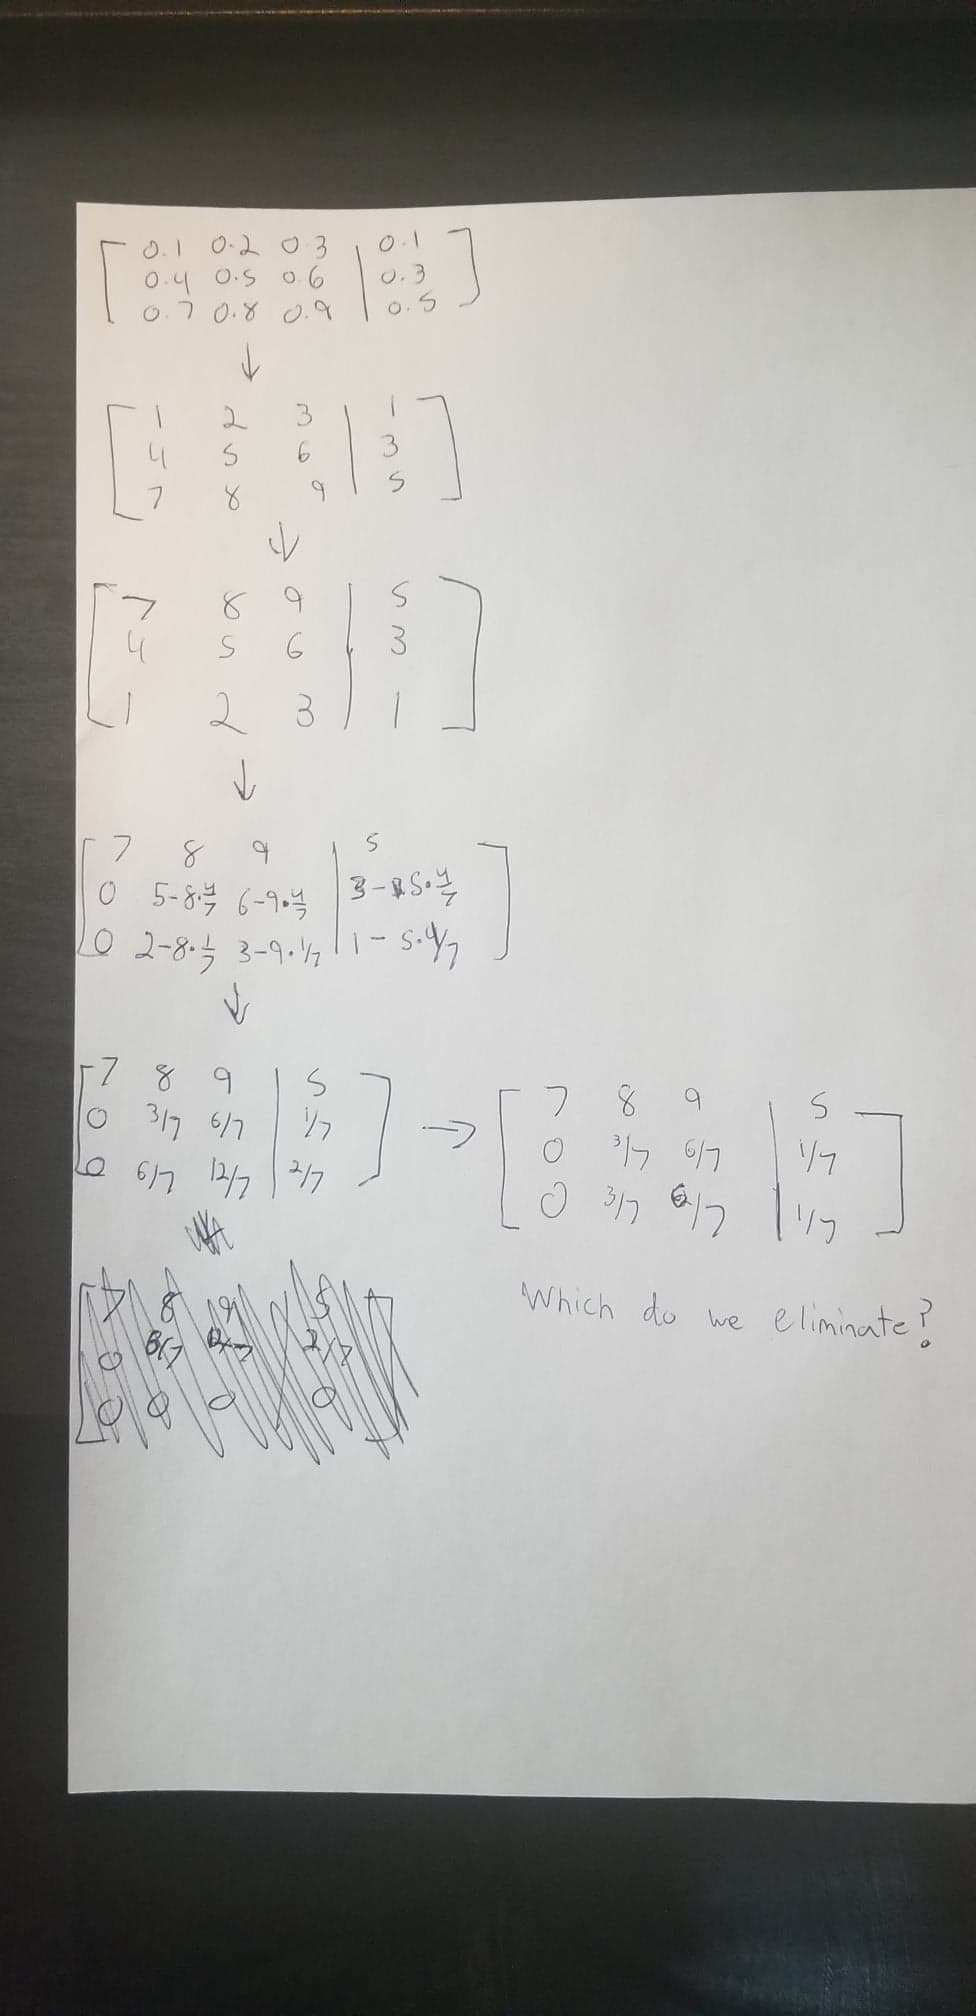 0.1 0.2 0.3 | 0.1
0.4 0.5 0.6 | 0.3
0.7 0.8 0.9 | 0.5
↓
1 2 3 | 1
4 5 6 | 3
7 8 9 | 5
↓
7 8 9 | 5
4 5 6 | 3
1 2 3 | 1
↓
7 8 9 | 5
0 5-8·4/7 6-9·4/7 | 3-5·4/7
0 2-8·1/7 3-9·1/7 | 1-5·1/7
↓
7 8 9 | 5
0 3/7 6/7 | 1/7
0 6/7 12/7 | 2/7
→
7 8 9 | 5
0 3/7 6/7 | 1/7
0 3/7 6/7 | 1/7
Which do we eliminate?